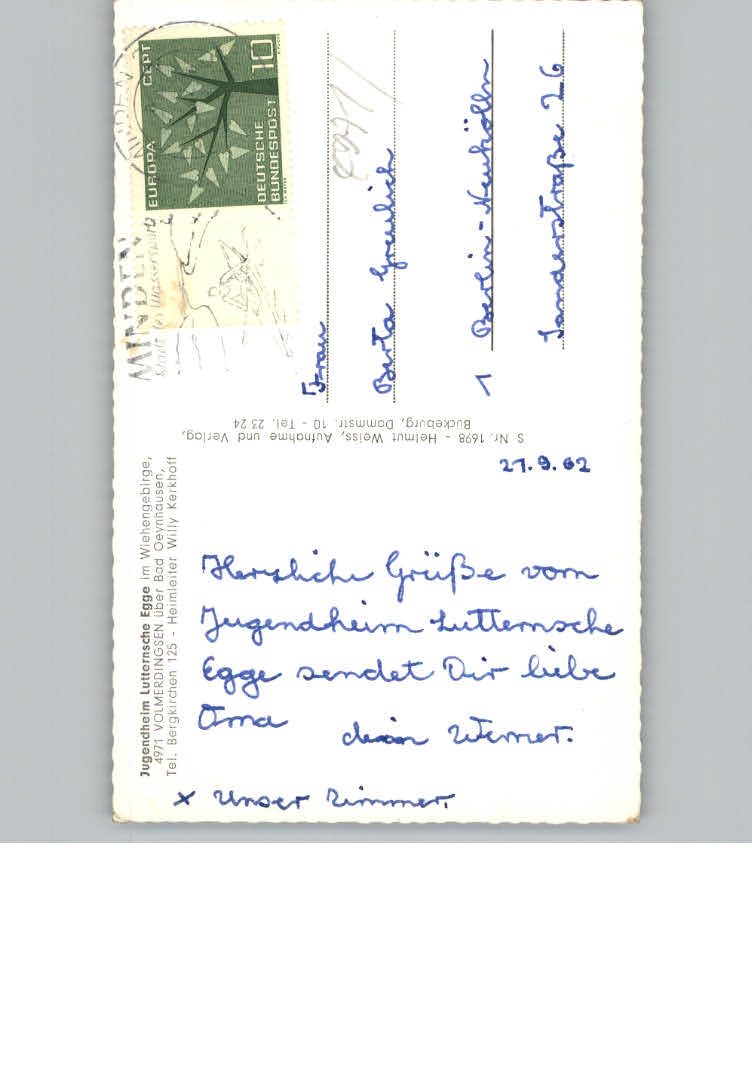 Jugendheim Lutternsche Egge im Wiehengebirge,
4971 VOLMERDINGSEN über Bad Oeynhausen,
Tel. Bergkirchen 125 - Heimleiter Willy Kerkhoff
27.9.62
Herzliche Grüße vom
Jugendheim Lutternsche
Egge sendet Dir liebe
Oma
dein Werner.
x Unser Zimmer.
S Nr. 1698 - Helmut Weiss, Aufnahme und Verlag,
Bückeburg, Dammstr. 10 - Tel. 23 24
MINDEN
Stadt des Wassersports
EUROPA CEPT
DEUTSCHE
BUNDESPOST
10
Frau
Berta Greulich
1 Berlin-Neukölln
Sanderstraße 26